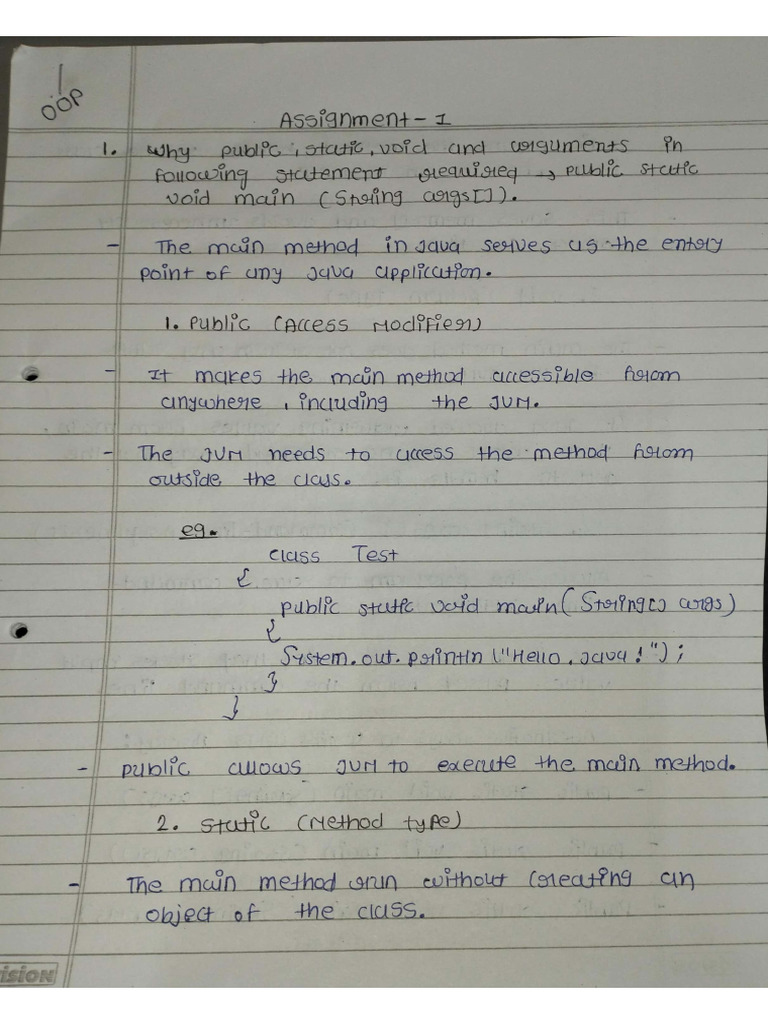 OOP
Assignment - 1
1. Why public, static, void and arguments in
following statement required → public static
void main (String args[]).
- The main method in Java serves as the entry
point of any Java application.
1. Public (Access Modifier)
- It makes the main method accessible from
anywhere, including the JVM.
- The JVM needs to access the method from
outside the class.
eg.
class Test
{
public static void main(String[] args)
{
System.out.println("Hello, Java!");
}
}
- Public allows JVM to execute the main method.
2. Static (Method type)
- The main method run without creating an
object of the class.
ISION